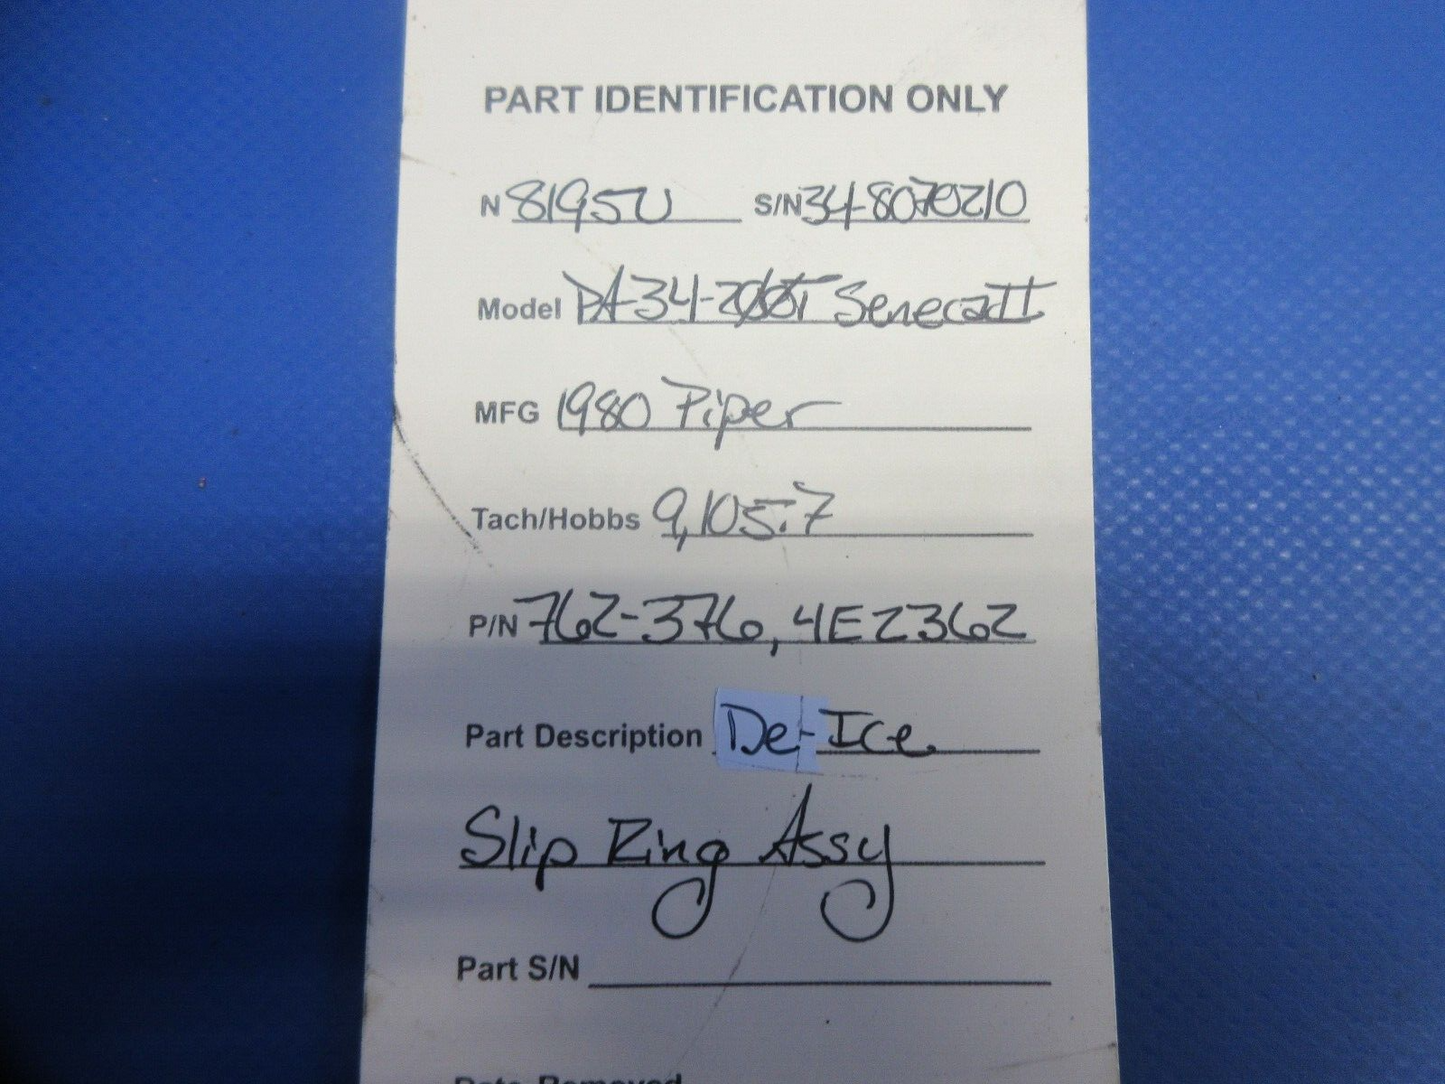 PART IDENTIFICATION ONLY
N 8195U S/N 34-8070210
Model PA-34-200T Seneca II
MFG 1980 Piper
Tach/Hobbs 9,105.7
P/N 762-376, 4E2362
Part Description De-Ice
Slip Ring Assy
Part S/N
Date Removed